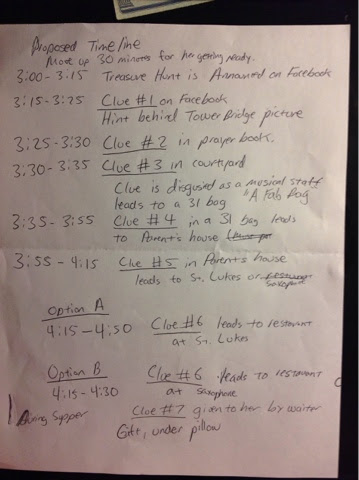 Proposed Timeline
Most up 30 minutes for her getting ready.
3:00-3:15 Treasure Hunt is Announed on Facebook
3:15-3:25 Clue #1 on Facebook
Hint behind Tower Bridge picture
3:25-3:30 Clue #2 in prayer book.
3:30-3:35 Clue #3 in courtyard
Clue is disgused as a musical staff
"A Fab Bag
leads to a 31 bag
3:35-3:55 Clue #4 in a 31 bag leads
to Parent's house
3:55-4:15 Clue #5 in Parent's house
leads to St. Lukes or
saxophone
Option A
4:15-4:50 Clue #6 leads to restaurant
at St. Lukes
Option B
4:15-4:30 Clue #6 leads to restaurant
at saxophone
During Supper Clue #7 given to her by waiter
Gift, under pillow